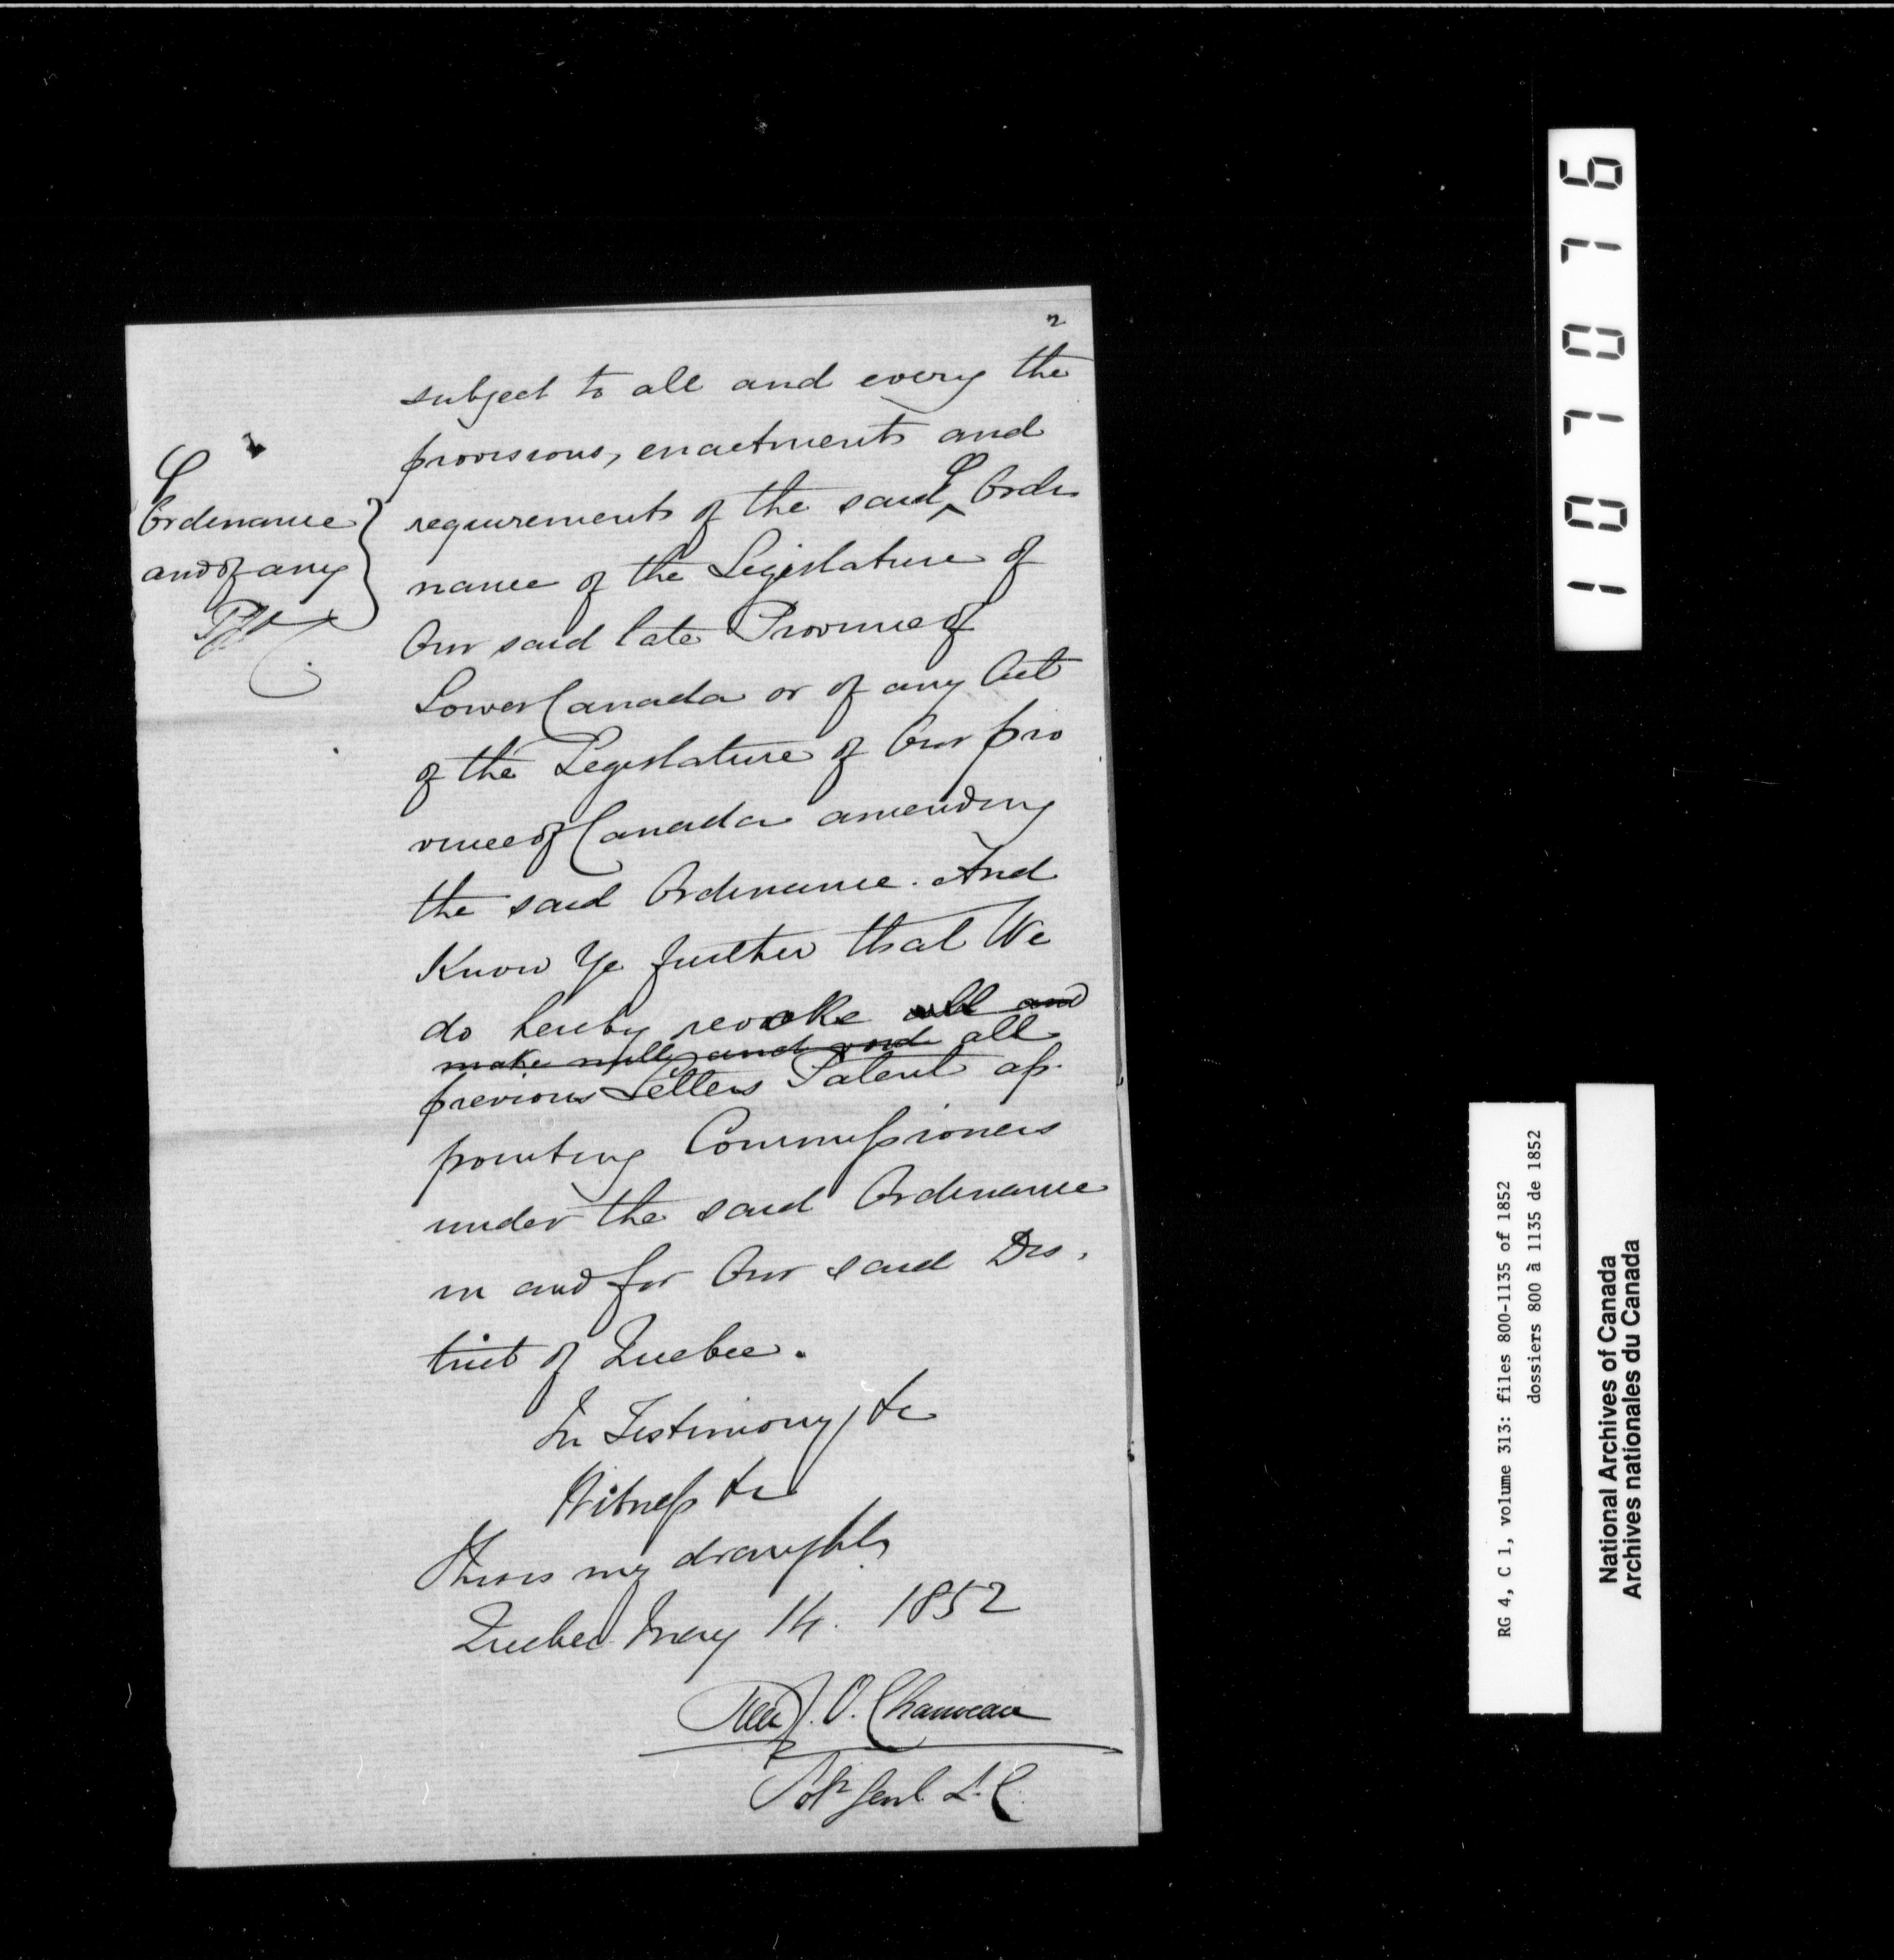 2
subject to all and every the
provisions, enactments and
requirements of the said Ordi
Ordinance
and of any
nance of the Legislature of
Our said late Province of
Lower Canada or of any Act
of the Legislature of Our pro
vince of Canada amending
the said Ordinance. And
Know Ye further that We
do hereby revoke all and
make null and void all
previous Letters Patent ap-
pointing Commissioners
under the said Ordinance
in and for Our said Dis.
trict of Quebec.
In Testimony &c
Witness &c
This is my draught,
Quebec May 14. 1852
Pierre J. O. Chauveau
Solr Genl. L. C.
107076
RG 4, C 1, volume 313: files 800-1135 of 1852
dossiers 800 à 1135 de 1852
National Archives of Canada
Archives nationales du Canada